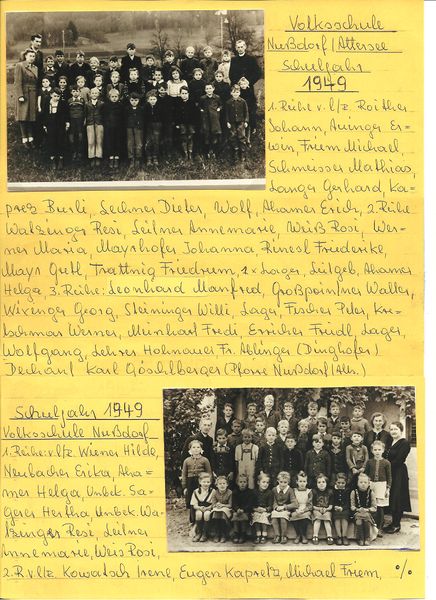 Volksschule
Nußdorf/Attersee
Schuljahr
1949
1. Reihe v. l/z. Roither
Johann, Auinger Er-
win, Friem Michael,
Schmeisser Mathias,
Langer Gerhard, Ka-
pretz Burli, Lechner Dieter, Wolf, Ahamer Erich, 2. Reihe
Walzinger Resi, Leitner Annemarie, Weiß Rosi, Wer-
ner Maria Mayrhofer Johanna, Rinesl Friederike,
Mayr Gretl, Trattnig Friedrum, 1 x Lager, Leitgeb, Ahamer
Helga 3. Reihe: Leonhard Manfred, Großpointner Walter,
Wixenger Georg, Steininger Willi, Lager, Fischer Peter, Kre-
tschmar Werner, Meinhart Fredi, Erricher Friedl, Lager,
Wolfgang, Lehrer Hohnauer, Fr. Ablinger (Dinghofer)
Dechant Karl Göschlberger (Pfarre Nußdorf/Atter.)
Schuljahr 1949
Volksschule Nußdorf
1. Reihe: v. l/z Wiener Hilde,
Neubacher Erika, Aha-
mer Helga, Unbek. Sa-
gerer Hertha, Unbek. Wa-
lzinger Resi, Leitner
Annemarie, Weis Rosi,
2. R v. l/z. Kowatsch Irene, Eugen Kapretz, Michael Friem, %